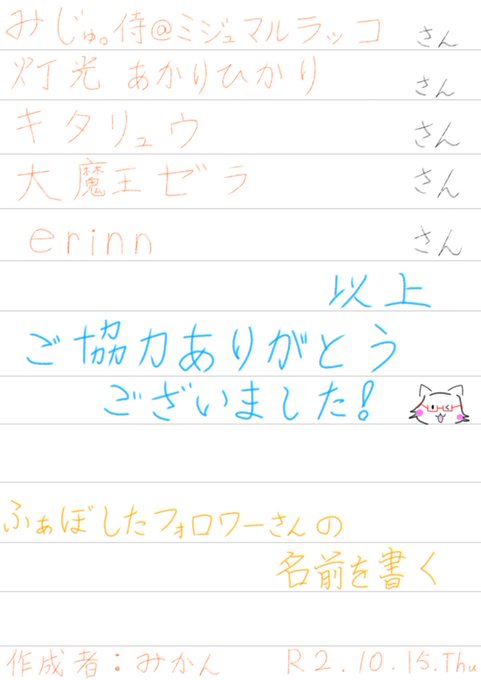 みじゅ。侍@ミジュマルラッコ さん
灯光 あかりひかり さん
キタリュウ さん
大魔王ゼラ さん
erinn さん
以上
ご協力ありがとう
ございました!
ふぁぼしたフォロワーさんの
名前を書く
作成者:みかん R2.10.15.Thu